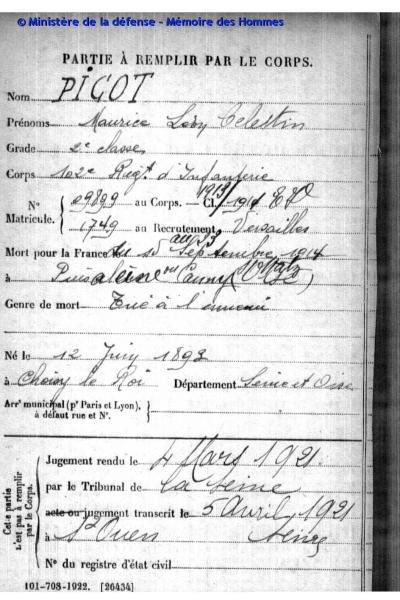 © Ministère de la défense - Mémoire des Hommes
PARTIE À REMPLIR PAR LE CORPS.
Nom PIGOT
Prénoms Maurice Léon Celestin
Grade 2e classe
Corps 102e Régt d'Infanterie
N° Matricule. { 09899 au Corps. — Cl. 1913/1914 EV
1749 au Recrutement Versailles
Mort pour la France du 15 au 23 Septembre 1914
à ou Canny (Oise)
Genre de mort Tué à l'ennemi
Né le 12 Juin 1893
à Choisy le Roi Département Seine et Oise
Arrt municipal (pr Paris et Lyon), à défaut rue et N°. }
Cette partie n'est pas à remplir par le Corps.
Jugement rendu le 4 Mars 1921.
par le Tribunal de la Seine
acte ou jugement transcrit le 5 Avril 1921
à St Ouen Seine
N° du registre d'état civil
101-708-1922. [26434]